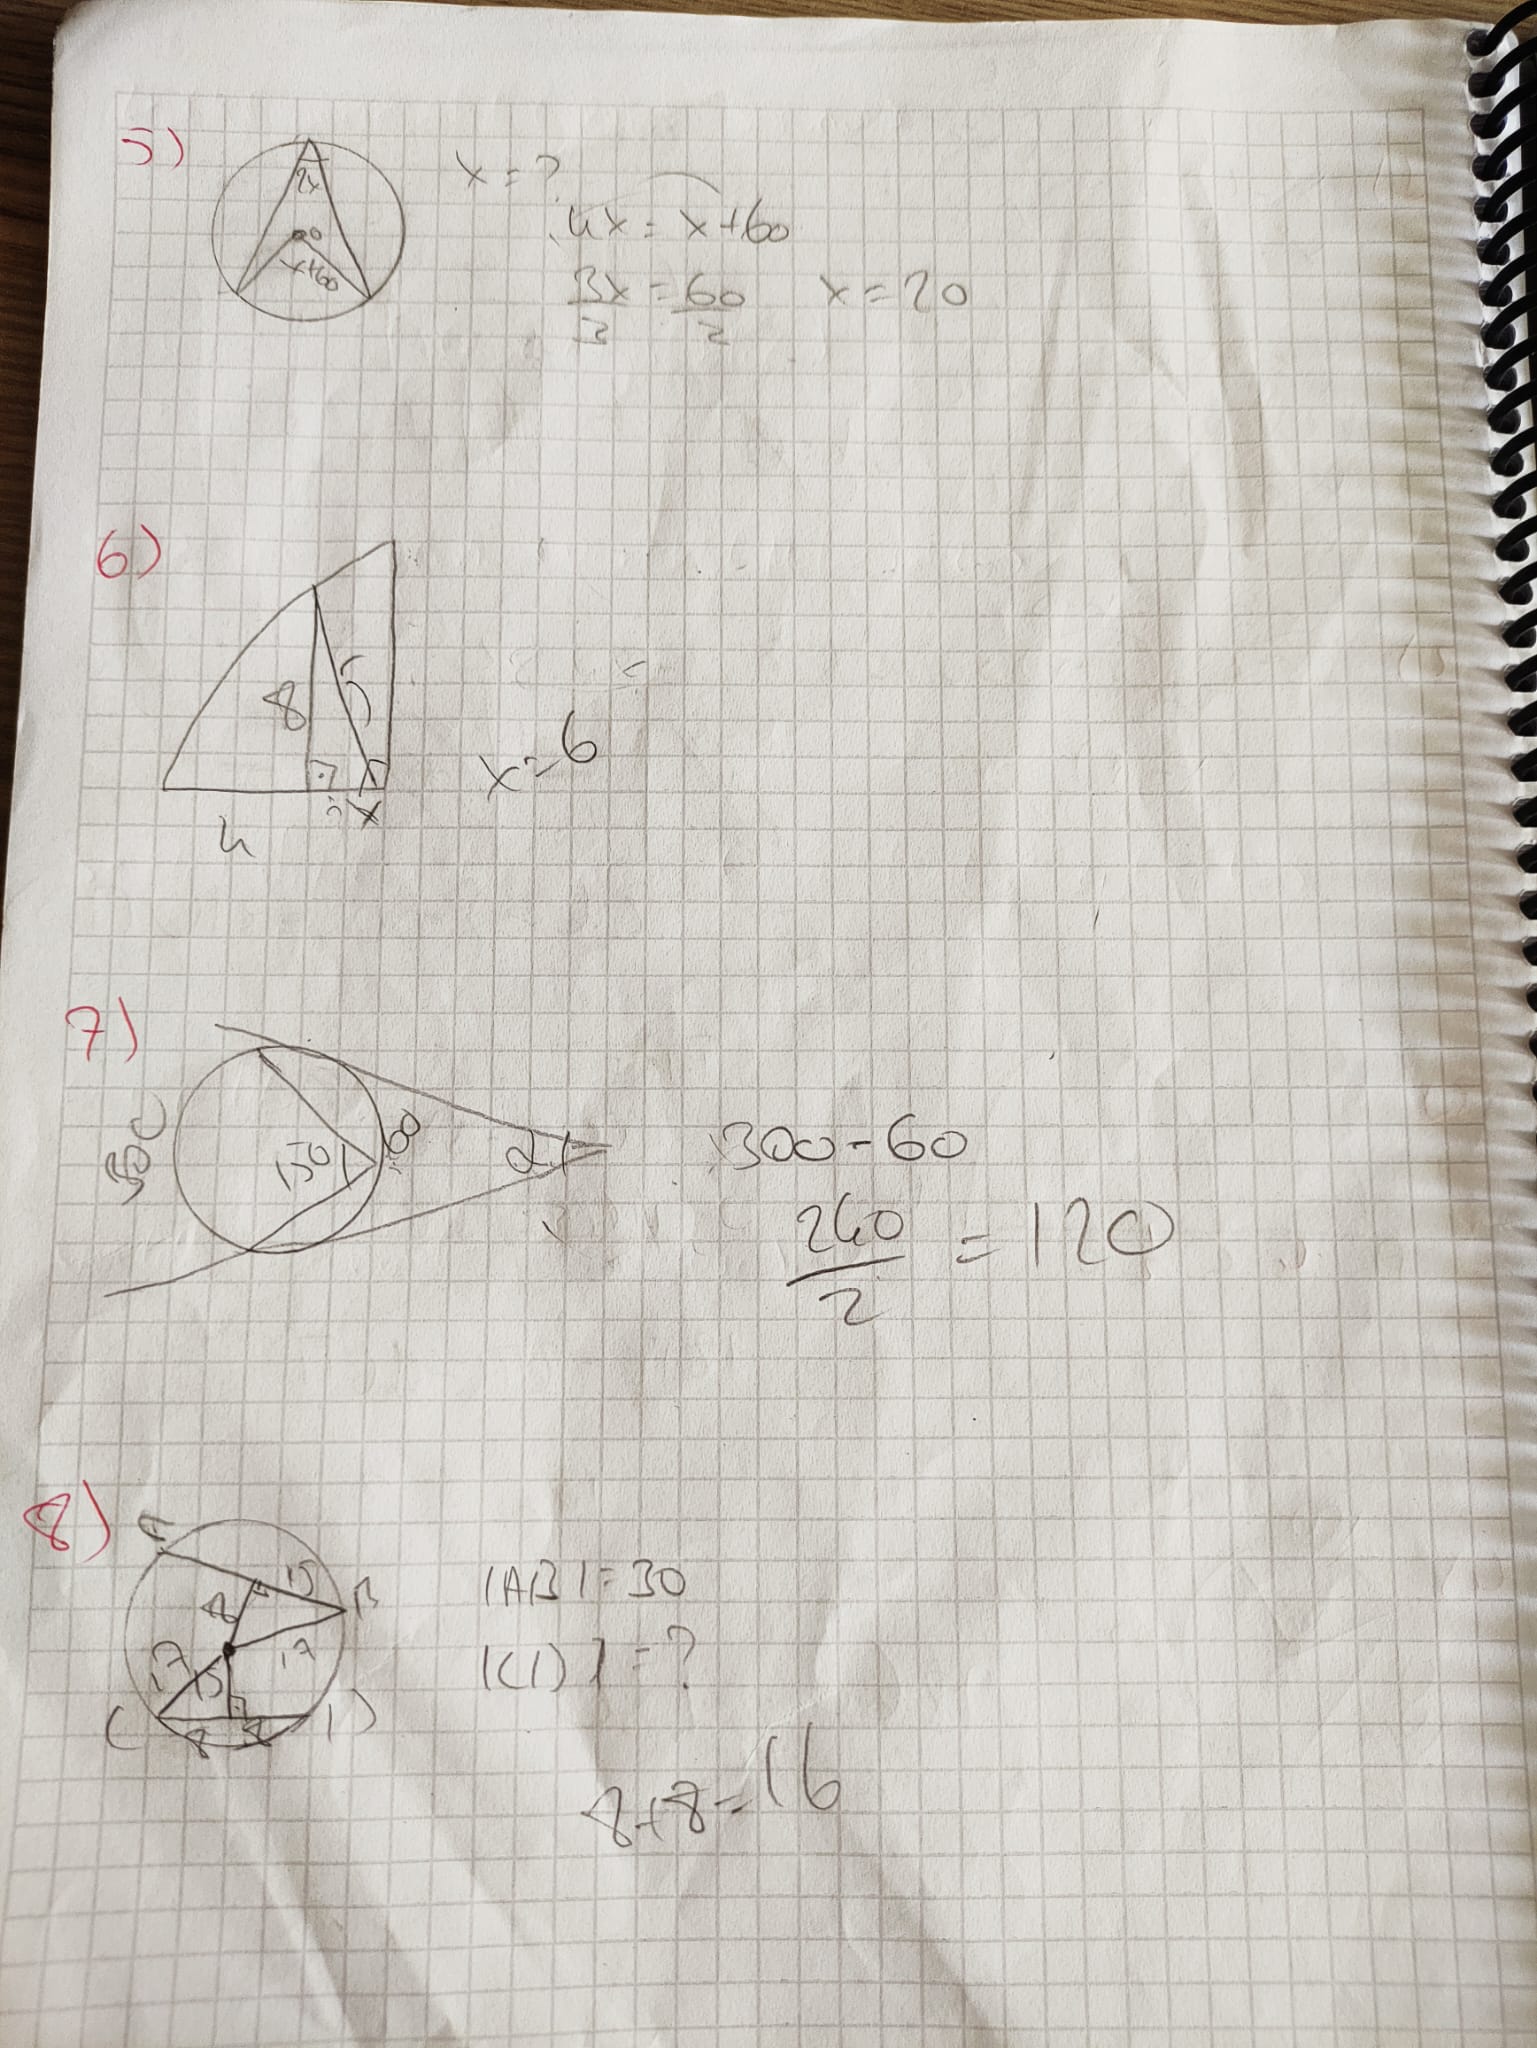 5)
2x
x+60
x = ?
4x = x+60
3x = 60
3 2
x = 20
6)
8
5
4
x
x = 6
7)
300
150
60
2x
300 - 60
240
2
= 120
8)
A
15
8
B
17
17
15
C
8 8
D
|AB| = 30
|CD| = ?
8+8 = 16